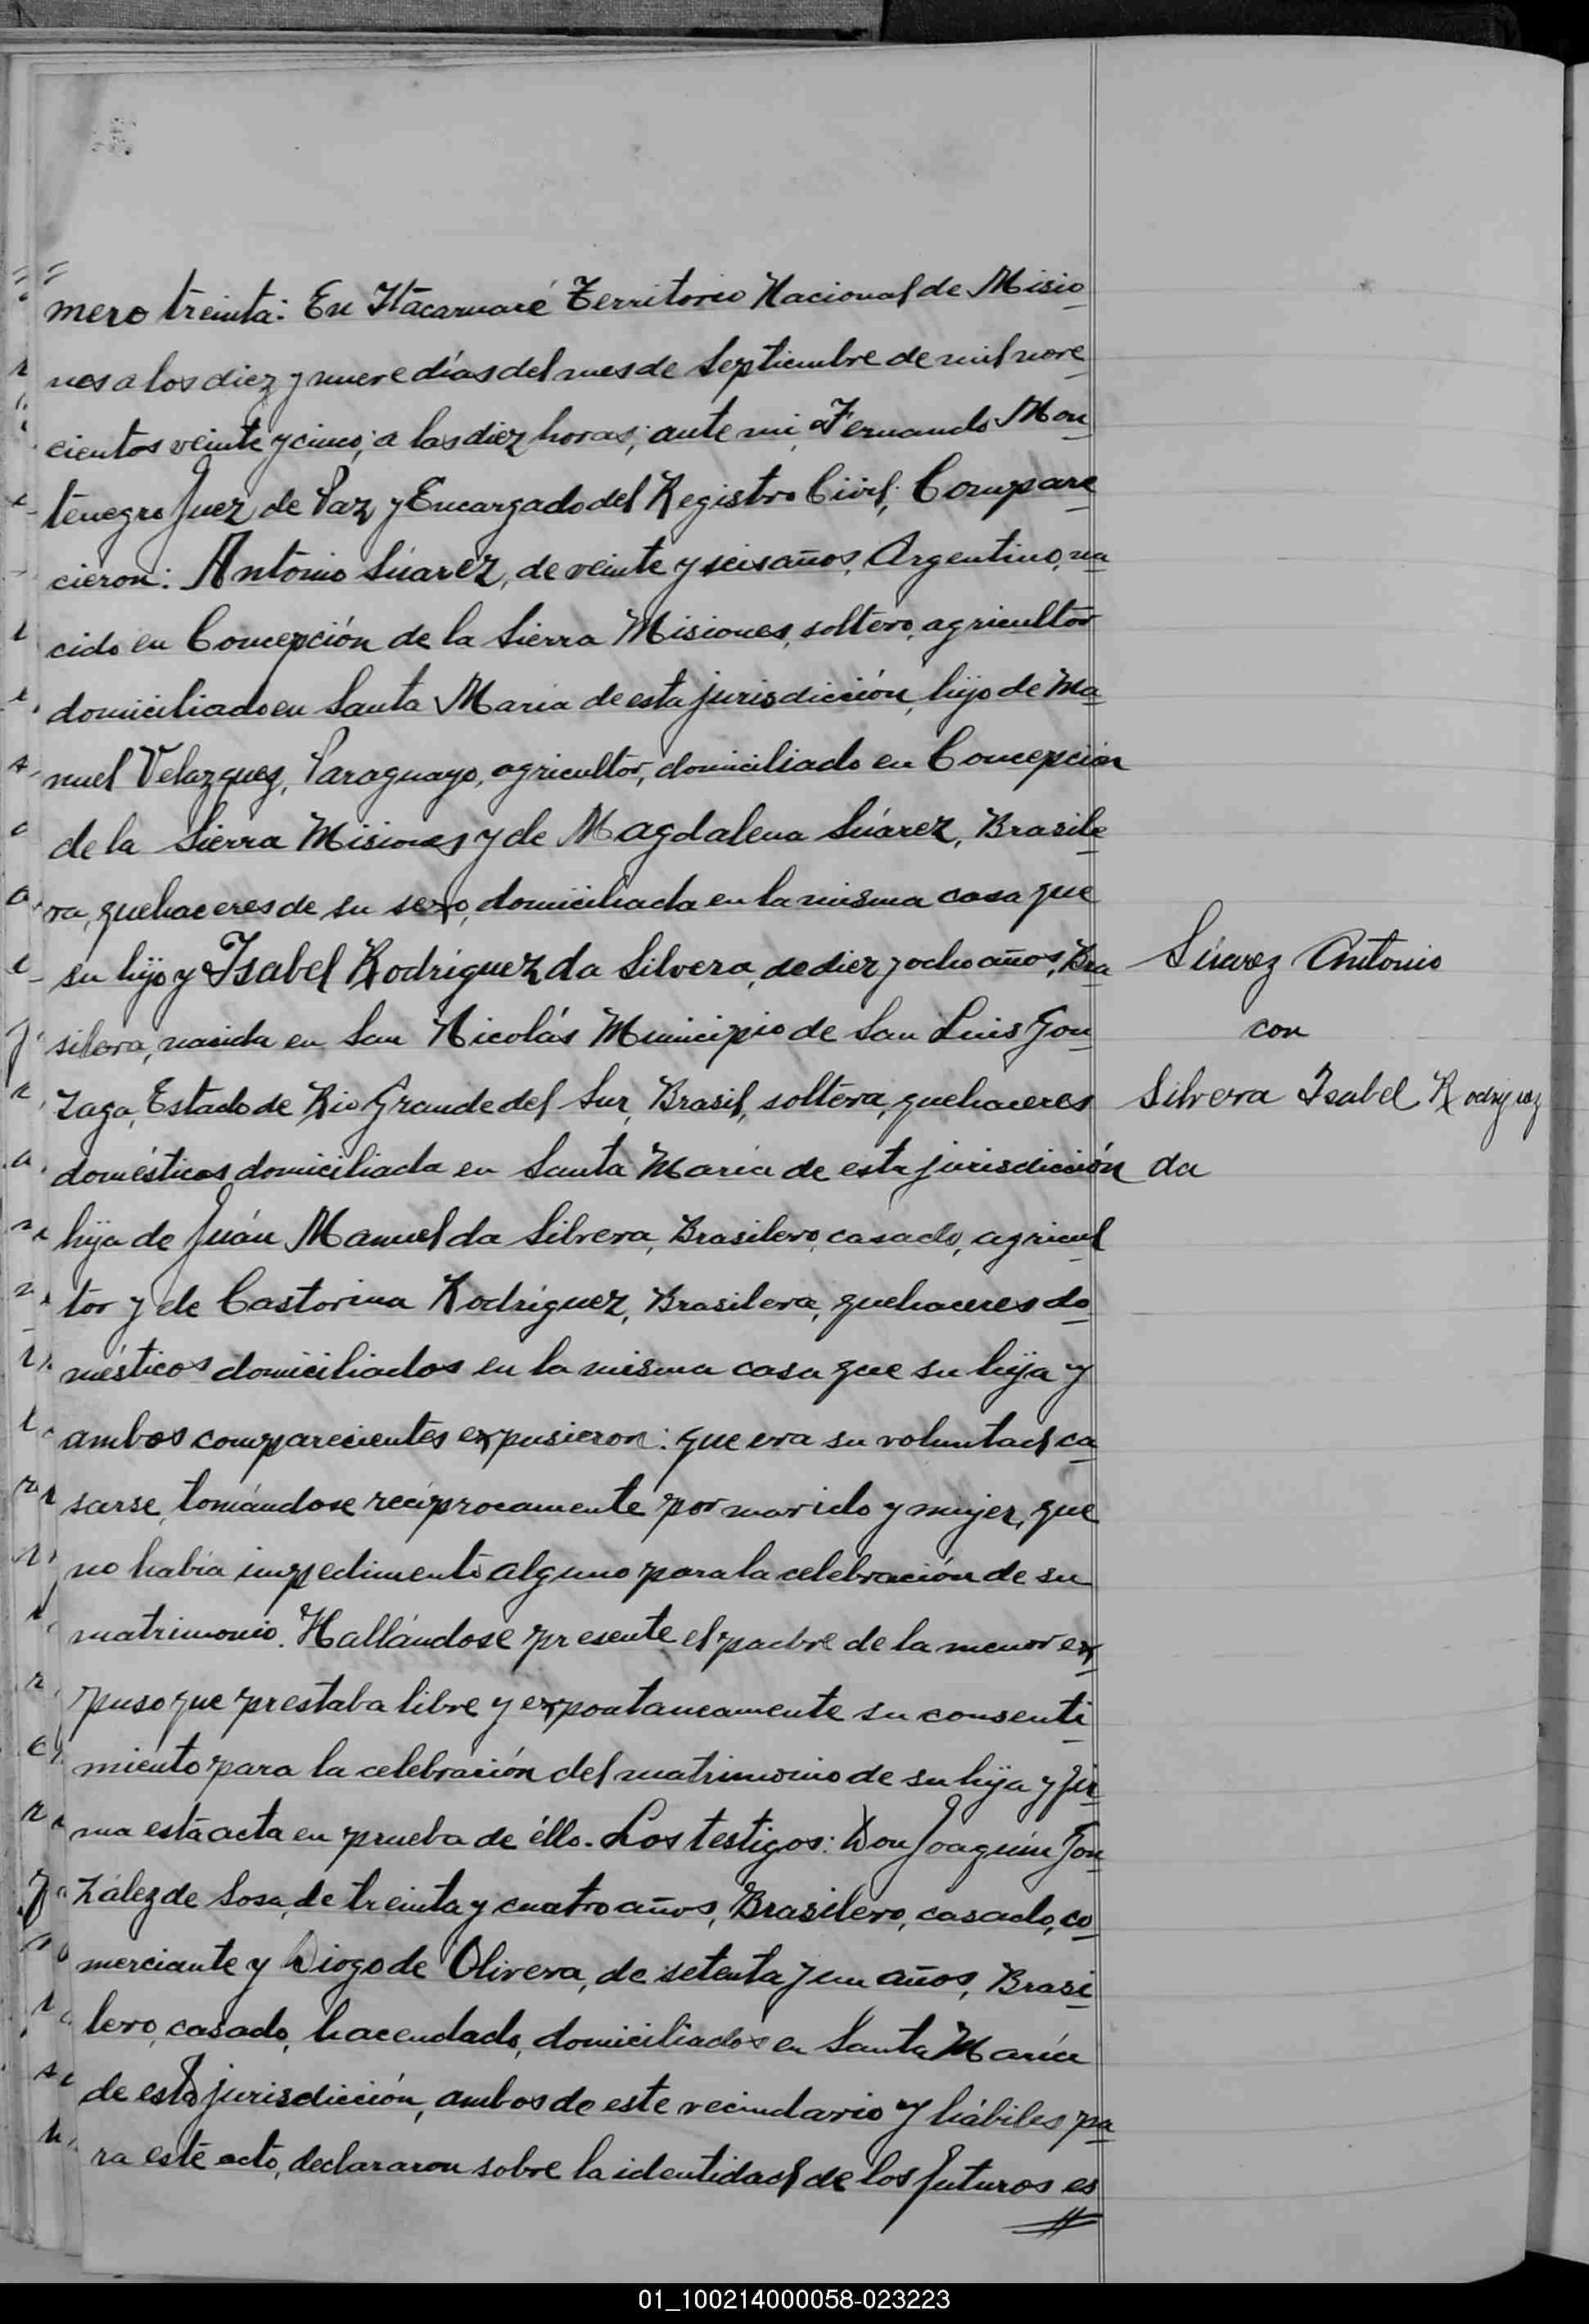 mero treinta: En Itacaruaré Territorio Nacional de Misio
nes a los diez y nueve días del mes de Septiembre de mil nove
cientos veinte y cinco; a las diez horas; ante mi, Fernando Mon
tenegro Juez de Paz y Encargado del Registro Civil; Compare
cieron: Antonio Súarez, de veinte y seis años, Argentino, na
cido en Concepción de la Sierra Misiones, soltero, agricultor
domiciliado en Santa Maria de esta jurisdicción, hijo de Ma
nuel Velazquez, Paraguayo, agricultor, domiciliado en Concepción
de la Sierra Misiones y de Magdalena Súarez, Brasile
ra, quehaceres de su sexo, domiciliada en la misma casa que
su hijo y Isabel Rodríguez da Silvera, de diez y ocho años, Bra
silera, nasida en San Nicolás Municipio de San Luis Gon
zaga, Estado de Rio Grande del Sur, Brasil, soltera, quehaceres
domésticos, domiciliada en Santa María de esta jurisdicción
hija de Juán Manuel da Silvera, Brasilero, casado, agricul
tor y de Castorina Rodríguez, Brasilera, quehaceres do
mésticos domiciliados en la misma casa que su hija y
ambos comparecientes expusieron: que era su voluntad ca
sarse, tomándose recíprocamente por marido y mujer, que
no había impedimento alguno para la celebración de su
matrimonio. Hallándose presente el padre de la menor ex
puso que prestaba libre y expontaneamente su consenti
miento para la celebración del matrimonio de su hija y fir
ma esta acta en prueba de éllo. Los testigos: Don Joaquín Gon
zález de Sosa, de treinta y cuatro años, Brasilero, casado, co
merciante y Diogo de Olivera, de setenta y un años, Brasi
lero, casado, hacendado, domiciliados en Santa María
de esta jurisdicción, ambos de este vecindario y hábiles pa
ra este acto, declararon sobre la identidad de los futuros es
Súarez Antonio
con
Silvera Isabel Rodriguez
da
01_100214000058-023223